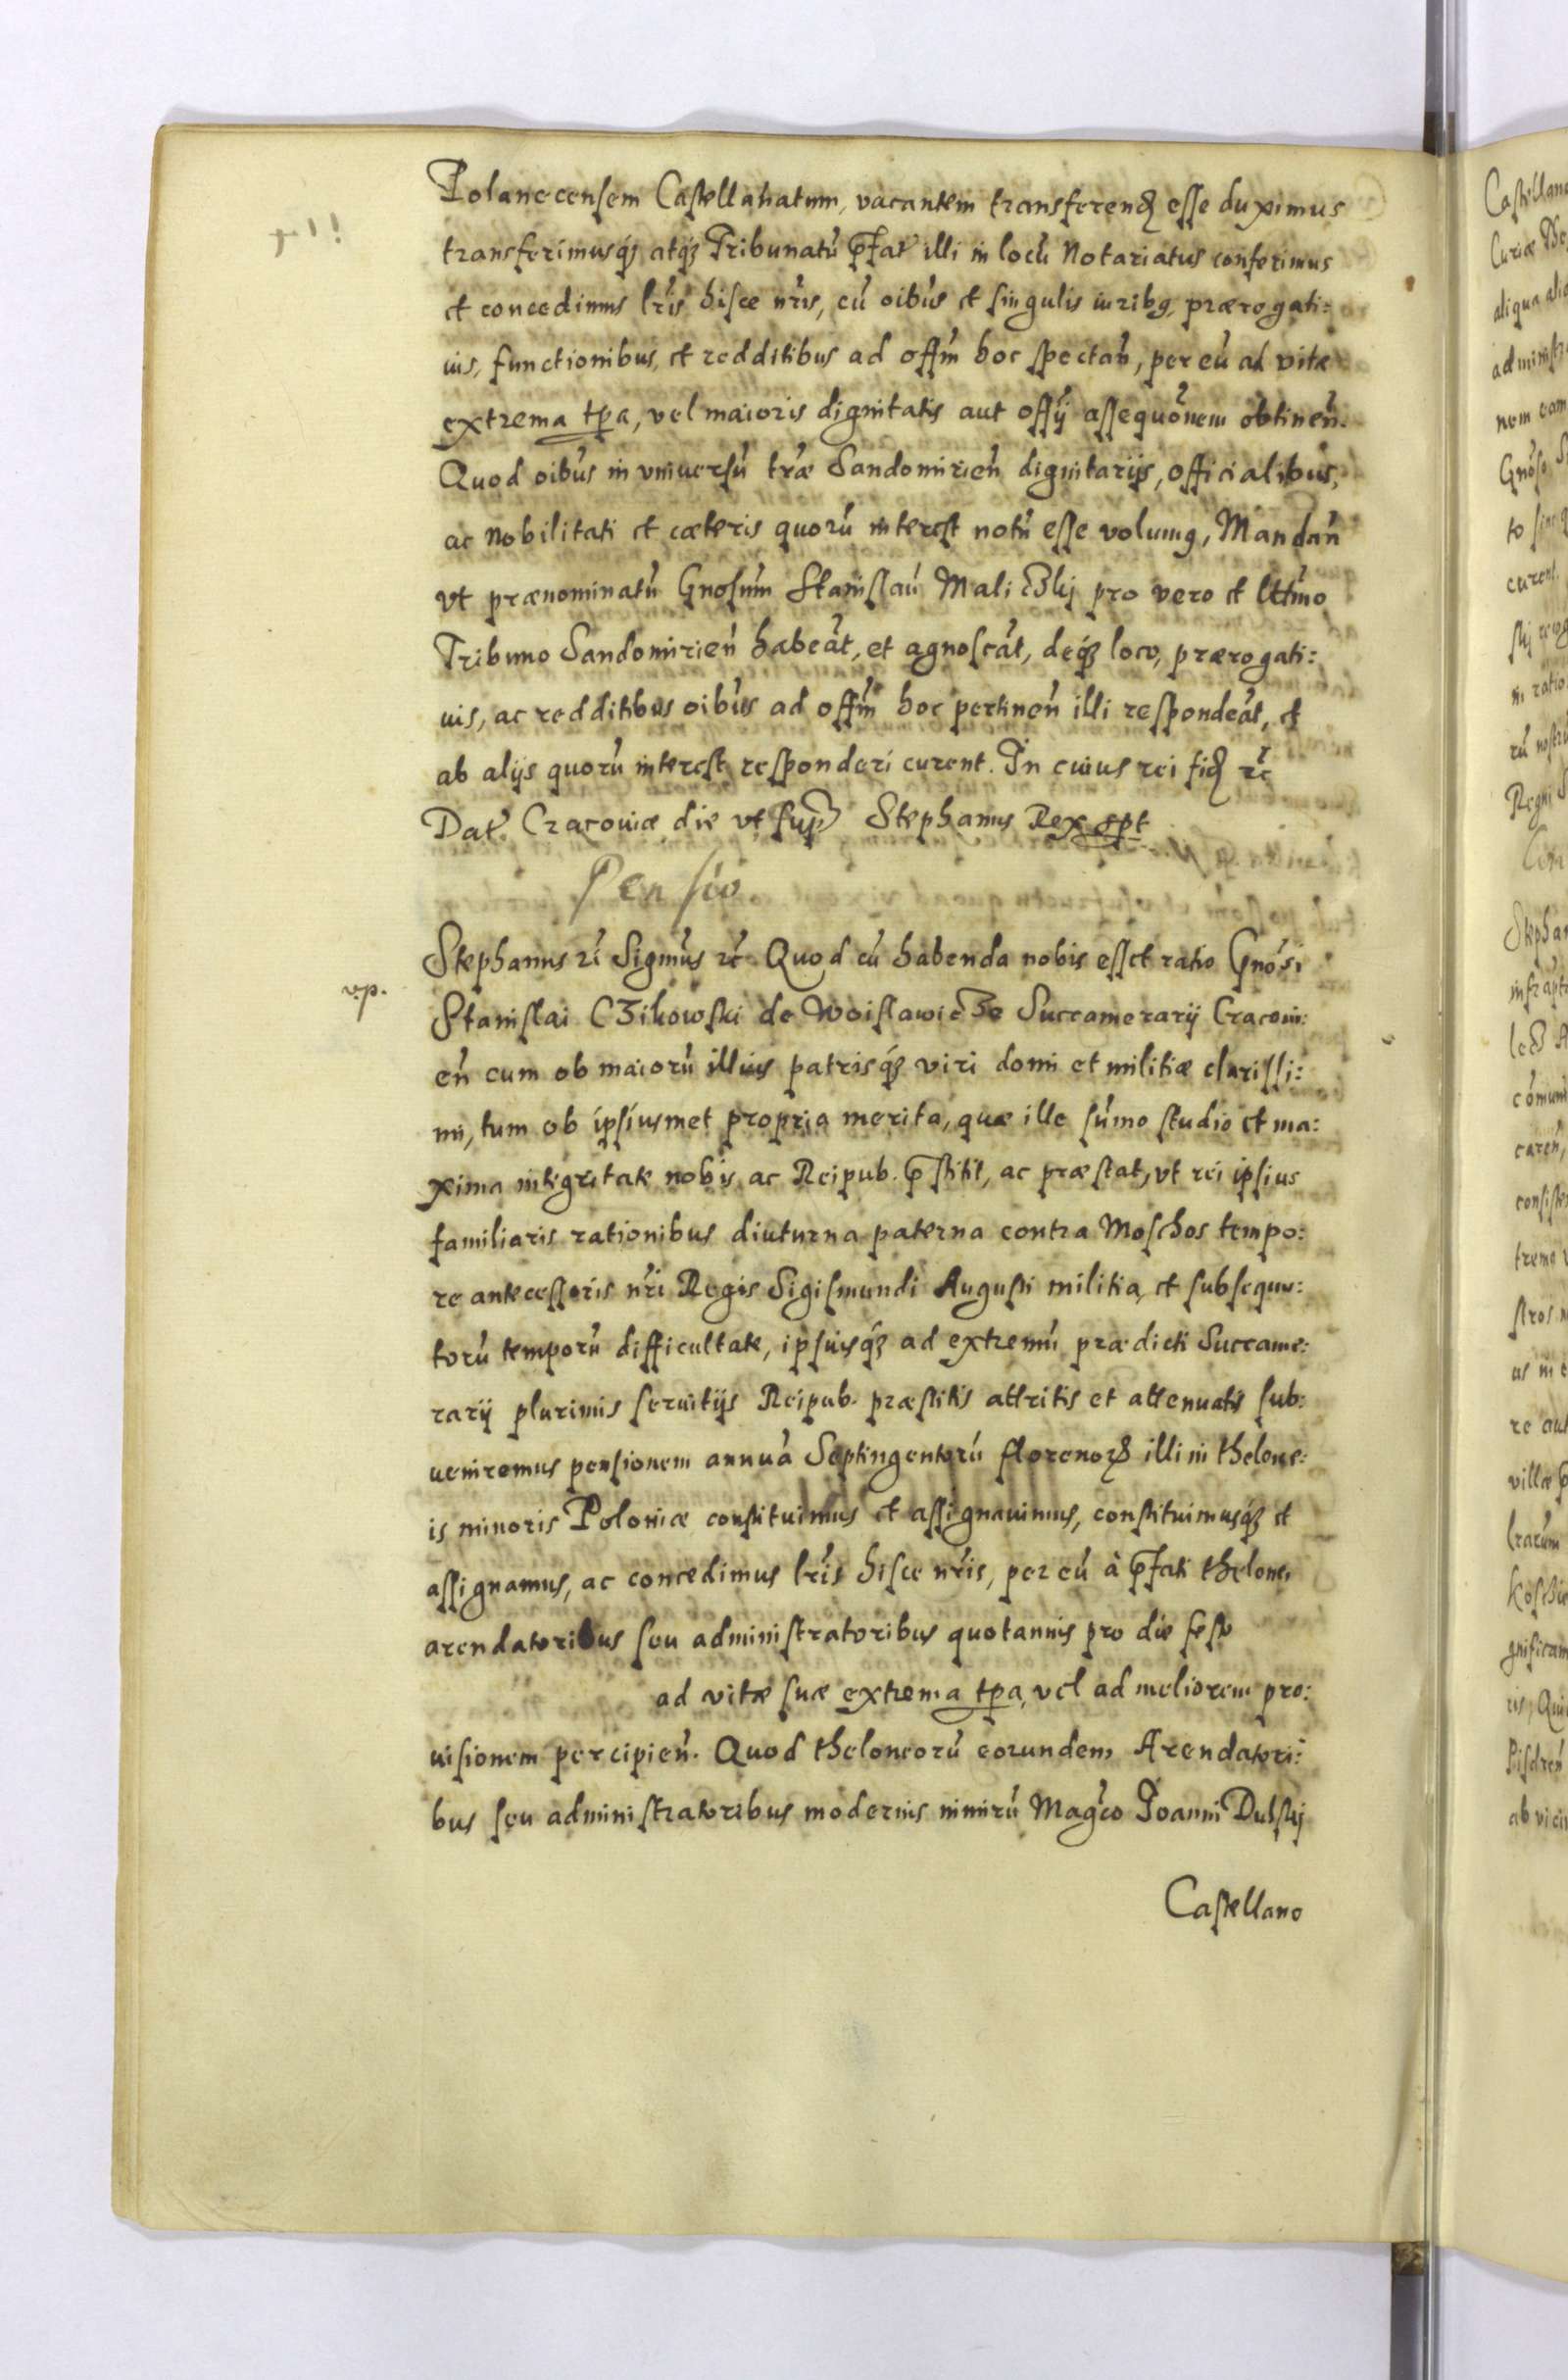 Polanecensem Castellanatum, vacantem transferend esse duximus
transferimusq́ꝫ atq́ꝫ Tribunatũ p̃fat̃ illi in locũ Notariatus conferimus
et concedimus lr̃is hisce nr̃is, cũ oĩbus et singulis iuribꝰ, prærogati:
uis, functionibus, et redditibus ad off̃m hoc spectañ, per eũ ad vitæ
extrema tp̃a, vel maioris dignitatis aut offĳ assequõnem obtineñ.
Quod oĩbus in vniuersũ tr̃æ Sandomirieñ dignitarĳs, officialibus,
ac Nobilitati et cæteris quorũ interest notũ esse volumꝰ, Mandañ
vt prænominatũ Gnosũm Stanislaũ Maliczkĳ pro vero et lt̃timo
Tribuno Sandomirieñ habeãt, et agnoscãt, deq́ꝫ loco, prærogati:
uis, ac redditibus oĩbus ad off̃m hoc pertineñ illi respondeãt, et
ab alĳs quorũ interest responderi curent. In cuius rei fid ꝛc̃
Dat̃. Cracouiæ die vt sup̃ Stephanus Rex spt
Pensio
Stephanus ꝛc̃ Sigm̃us ꝛc̃ Quod cũ habenda nobis esset ratio Gnõsi
Stanislai Czikowski de Woislawicze Succamerarĳ Cracoui:
eñ cum ob maiorũ illius patrisq́ꝫ viri domi et militiæ clarissi:
mi, tum ob ipsiusmet propria merita, quæ ille sum̃o studio et ma:
xima integritate nobis ac Reipub. p̃stitit, ac præstat, vt rei ipsius
familiaris rationibus diuturna paterna contra Moschos tempo:
re antecessoris nr̃i Regis Sigismundi Augusti militia, et subsequu:
torũ temporũ difficultate, ipsiusq́ꝫ ad extremũ prædicti Succame:
rarĳ plurimis seruitĳs Reipub. præstitis attritis et attenuatis sub:
ueniremus pensionem annuã Septingentorũ florenorꝫ illi in thelone:
is minoris Poloniæ constituimus et assignauimus, constituimusq́ꝫ et
assignamus, ac concedimus lr̃is hisce nr̃is, per eũ à p̃fati thelonei
arendatoribus seu administratoribus quotannis pro die festo
ad vitæ suæ extrema tp̃a, vel ad meliorem pro:
uisionem percipieñ. Quod theloneorũ eorundem Arendatori:
bus seu administratoribus modernis nimirũ Mag̃co Joanni Dulskĳ
Castellano